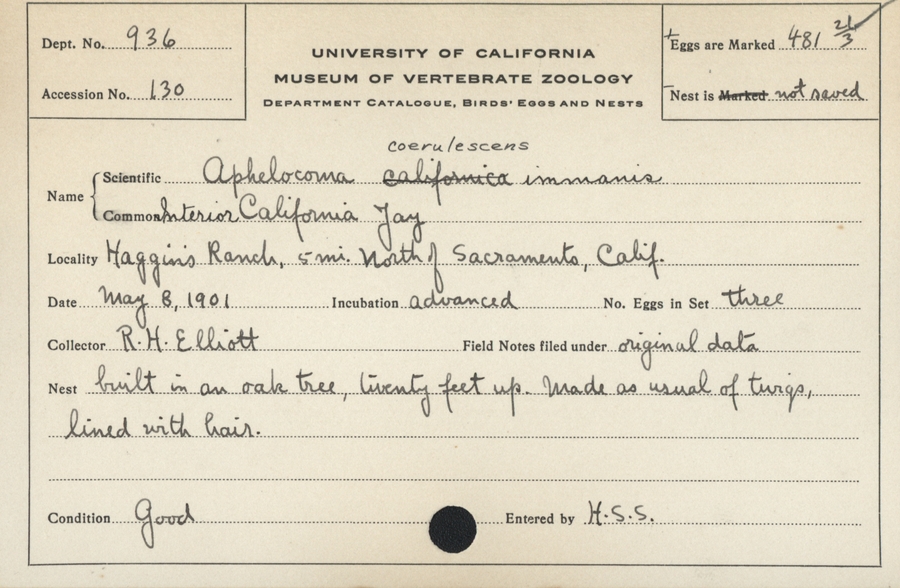 Dept. No. 936
Accession No. 130
UNIVERSITY OF CALIFORNIA
MUSEUM OF VERTEBRATE ZOOLOGY
DEPARTMENT CATALOGUE, BIRDS' EGGS AND NESTS
Eggs are Marked 481 21/3
Nest is Marked not saved
coerulescens
Name Scientific Aphelocoma californica immanis
Common Interior California Jay
Locality Haggin's Ranch, 5 mi. North of Sacramento, Calif.
Date May 8, 1901 Incubation advanced No. Eggs in Set three
Collector R. H. Elliott Field Notes filed under original data
Nest built in an oak tree, twenty feet up. Made as usual of twigs,
lined with hair.
Condition Good Entered by H.S.S.